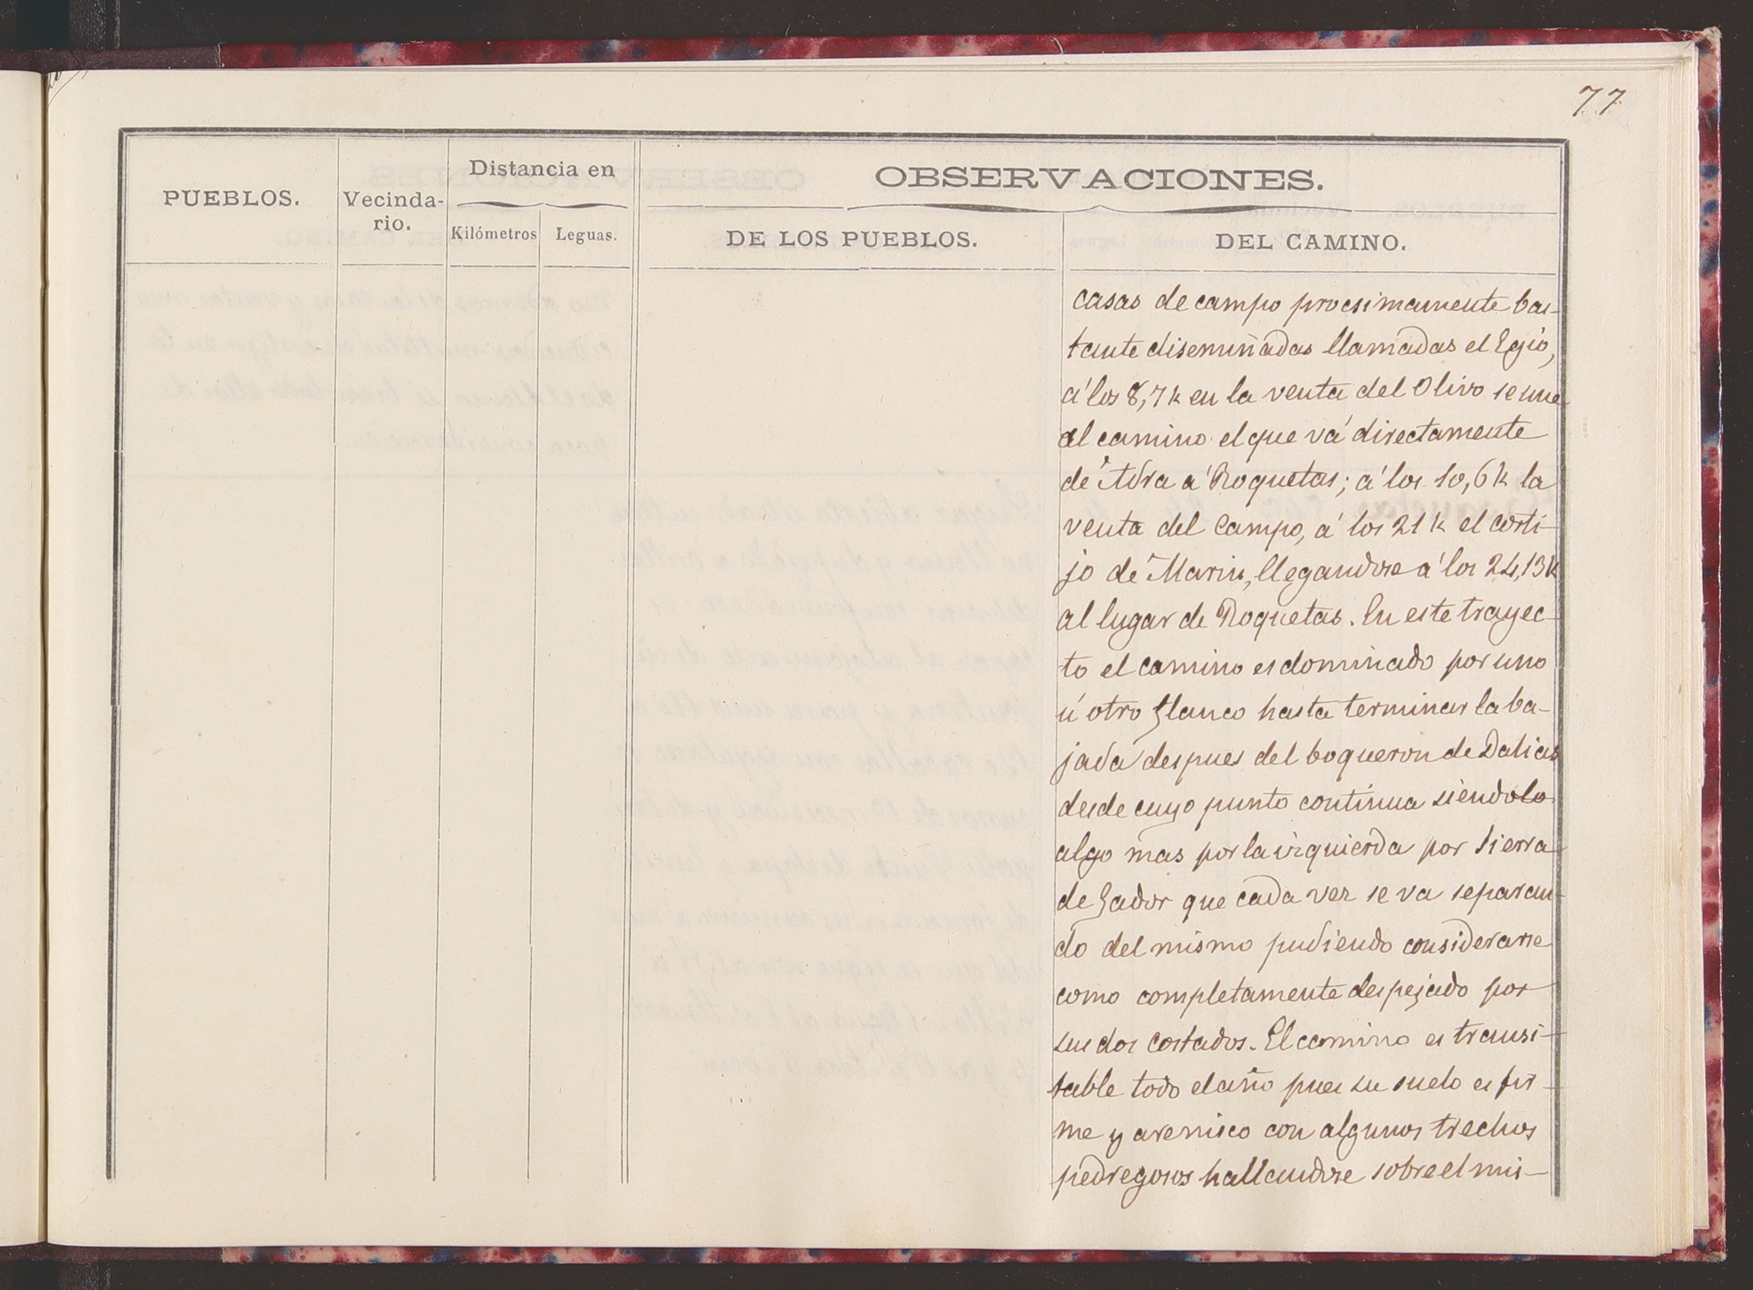 77
PUEBLOS.
Vecinda-
rio.
Distancia en
Kilómetros
Leguas.
OBSERVACIONES.
DE LOS PUEBLOS.
DEL CAMINO.
casas de campo procsimamente bas-
tante diseminadas llamadas el Egio,
á los 8,7 k en la venta del Olivo se une
al camino el que vá directamente
de Adra á Roquetas; á los 10,6 k la
venta del Campo, á los 21 k el corti-
jo de Marin, llegandose á los 24,13 k
al lugar de Roquetas. En este trayec-
to el camino es dominado por uno
ú otro flanco hasta terminar la ba-
jada despues del boqueron de Dalias
desde cuyo punto continua siendolo
algo mas por la izquierda por Sierra
de Gador que cada vez se va separan-
do del mismo pudiendo considerarse
como completamente despejado por
sus dos costados. El camino es transi-
table todo el año pues su suelo es fir-
me y arenisco con algunos trechos
pedregosos hallandose sobre el mis-